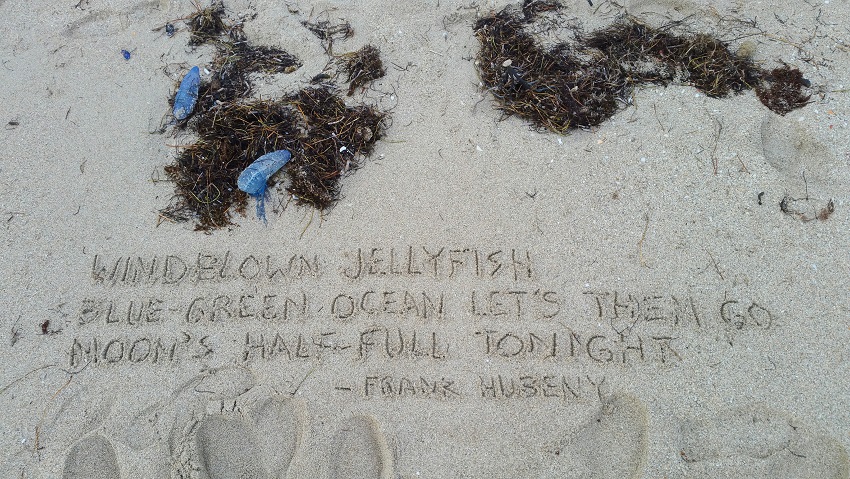 WINDBLOWN JELLYFISH
BLUE-GREEN OCEAN LET'S THEM GO
MOON'S HALF-FULL TONIGHT
- FRANK HUBENY